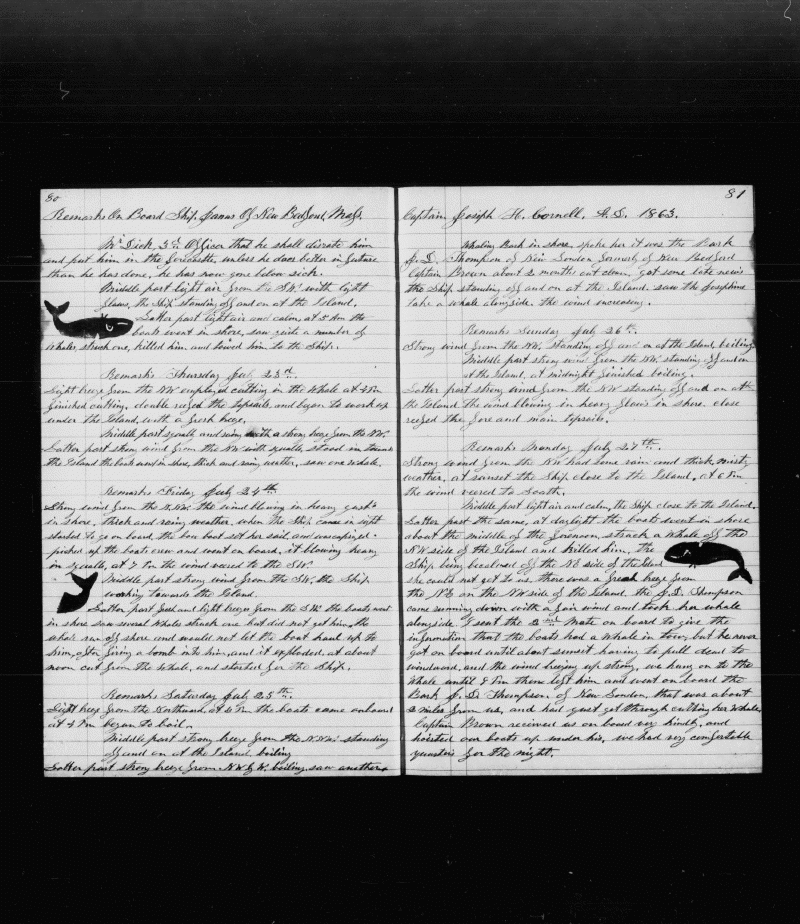 80
Remarks On Board Ship Janus Of New Bedford, Mass.
Mr Dick, 3rd Officer that he shall disrate him
and put him in the Forecastle, unless he does better in future
than he has done, he has now gone below sick.
Middle part light air from the SW. with light
flaws, the Ship standing off and on at the Island.
Latter part light air and calm, at 5 Am the
boats went in shore, saw quite a number of
Whales, struck one, killed him, and towed him to the Ship.
Remarks Thursday July 23rd
Light breeze from the NW employed cutting in the Whale at 4 Pm
finished cutting, double reefed the topsails, and began to work up
under the Island, with a fresh breeze.
Middle part squally and rainy with a strong breeze from the NW.
Latter part strong wind from the NW with squalls, stood in towards
the Island the boats went in shore, thick and rainy weather, saw one whale.
Remarks Friday July 24th
Strong wind from the N.NW. the wind blowing in heavy gusts
in shore, thick and rainy weather, when the Ship came in sight
started to go on board, the bow boat set her sail, and was capsized.
picked up the boats crew and went on board, it blowing heavy
in squalls, at 7 Pm the wind veered to the SW.
Middle part strong wind from the SW, the Ship
working towards the Island.
Latter part fresh and light breezes from the SW. the boats went
in shore saw several whales struck one but did not get him, the
whale run off shore and would not let the boat haul up to
him, after firing a bomb into him, and it exploded, at about
noon cut from the Whale, and started for the Ship.
Remarks Saturday July 25th.
Light breeze from the Northward, at 2 Pm the boats came onboard
at 4 Pm began to boil.
Middle part strong breeze from the N.NW. standing
off and on at the Island, boiling
Latter part strong breeze from NW by W. boiling, saw another
81
Captain Joseph H. Cornell, A.D. 1863.
Whaling Bark in shore, spoke her it was the Bark
J. D. Thompson of New London formerly of New Bedford
Captain Brown about 2 months out clean, got some late news
the Ship standing off and on at the Island. saw the Josephine
take a whale alongside. the wind increasing.
Remarks Sunday July 26th.
Strong wind from the NW, standing off and on at the Island, boiling
Middle part strong wind from the NW, standing off and on
at the Island, at midnight finished boiling.
Latter part strong wind from the NW standing off and on at
the Island the wind blowing in heavy flaws in shore. close
reefed the fore and main topsails.
Remarks Monday July 27th.
Strong wind from the NW had some rain and thick, misty
weather, at sunset the Ship close to the Island, at 6 Pm
the wind veered to South.
Middle part light air and calm, the Ship close to the Island.
Latter part the same, at daylight the boats went in shore
about the middle of the forenoon, struck a Whale off the
NW side of the Island and killed him, the
Ship being becalmed off the NE side of the Island
she could not get to us, there was a fresh breeze from
the NE on the NW side of the Island. the J.D. Thompson
came running down with a fair wind and took her whale
alongside I sent the 2nd Mate on board to give the
information that the boats had a Whale in tow, but he never
got on board until about sunset having to pull dead to
windward, and the wind breezing up strong, we hung on to the
Whale until 8 Pm then left him and went on board the
Bark J. D Thompson of New London, that was about
2 miles from us, and had just got through cutting her Whale
Captain Brown received us on board very kindly, and
hoisted our boats up under his, we had very comfortable
quarters for the night.